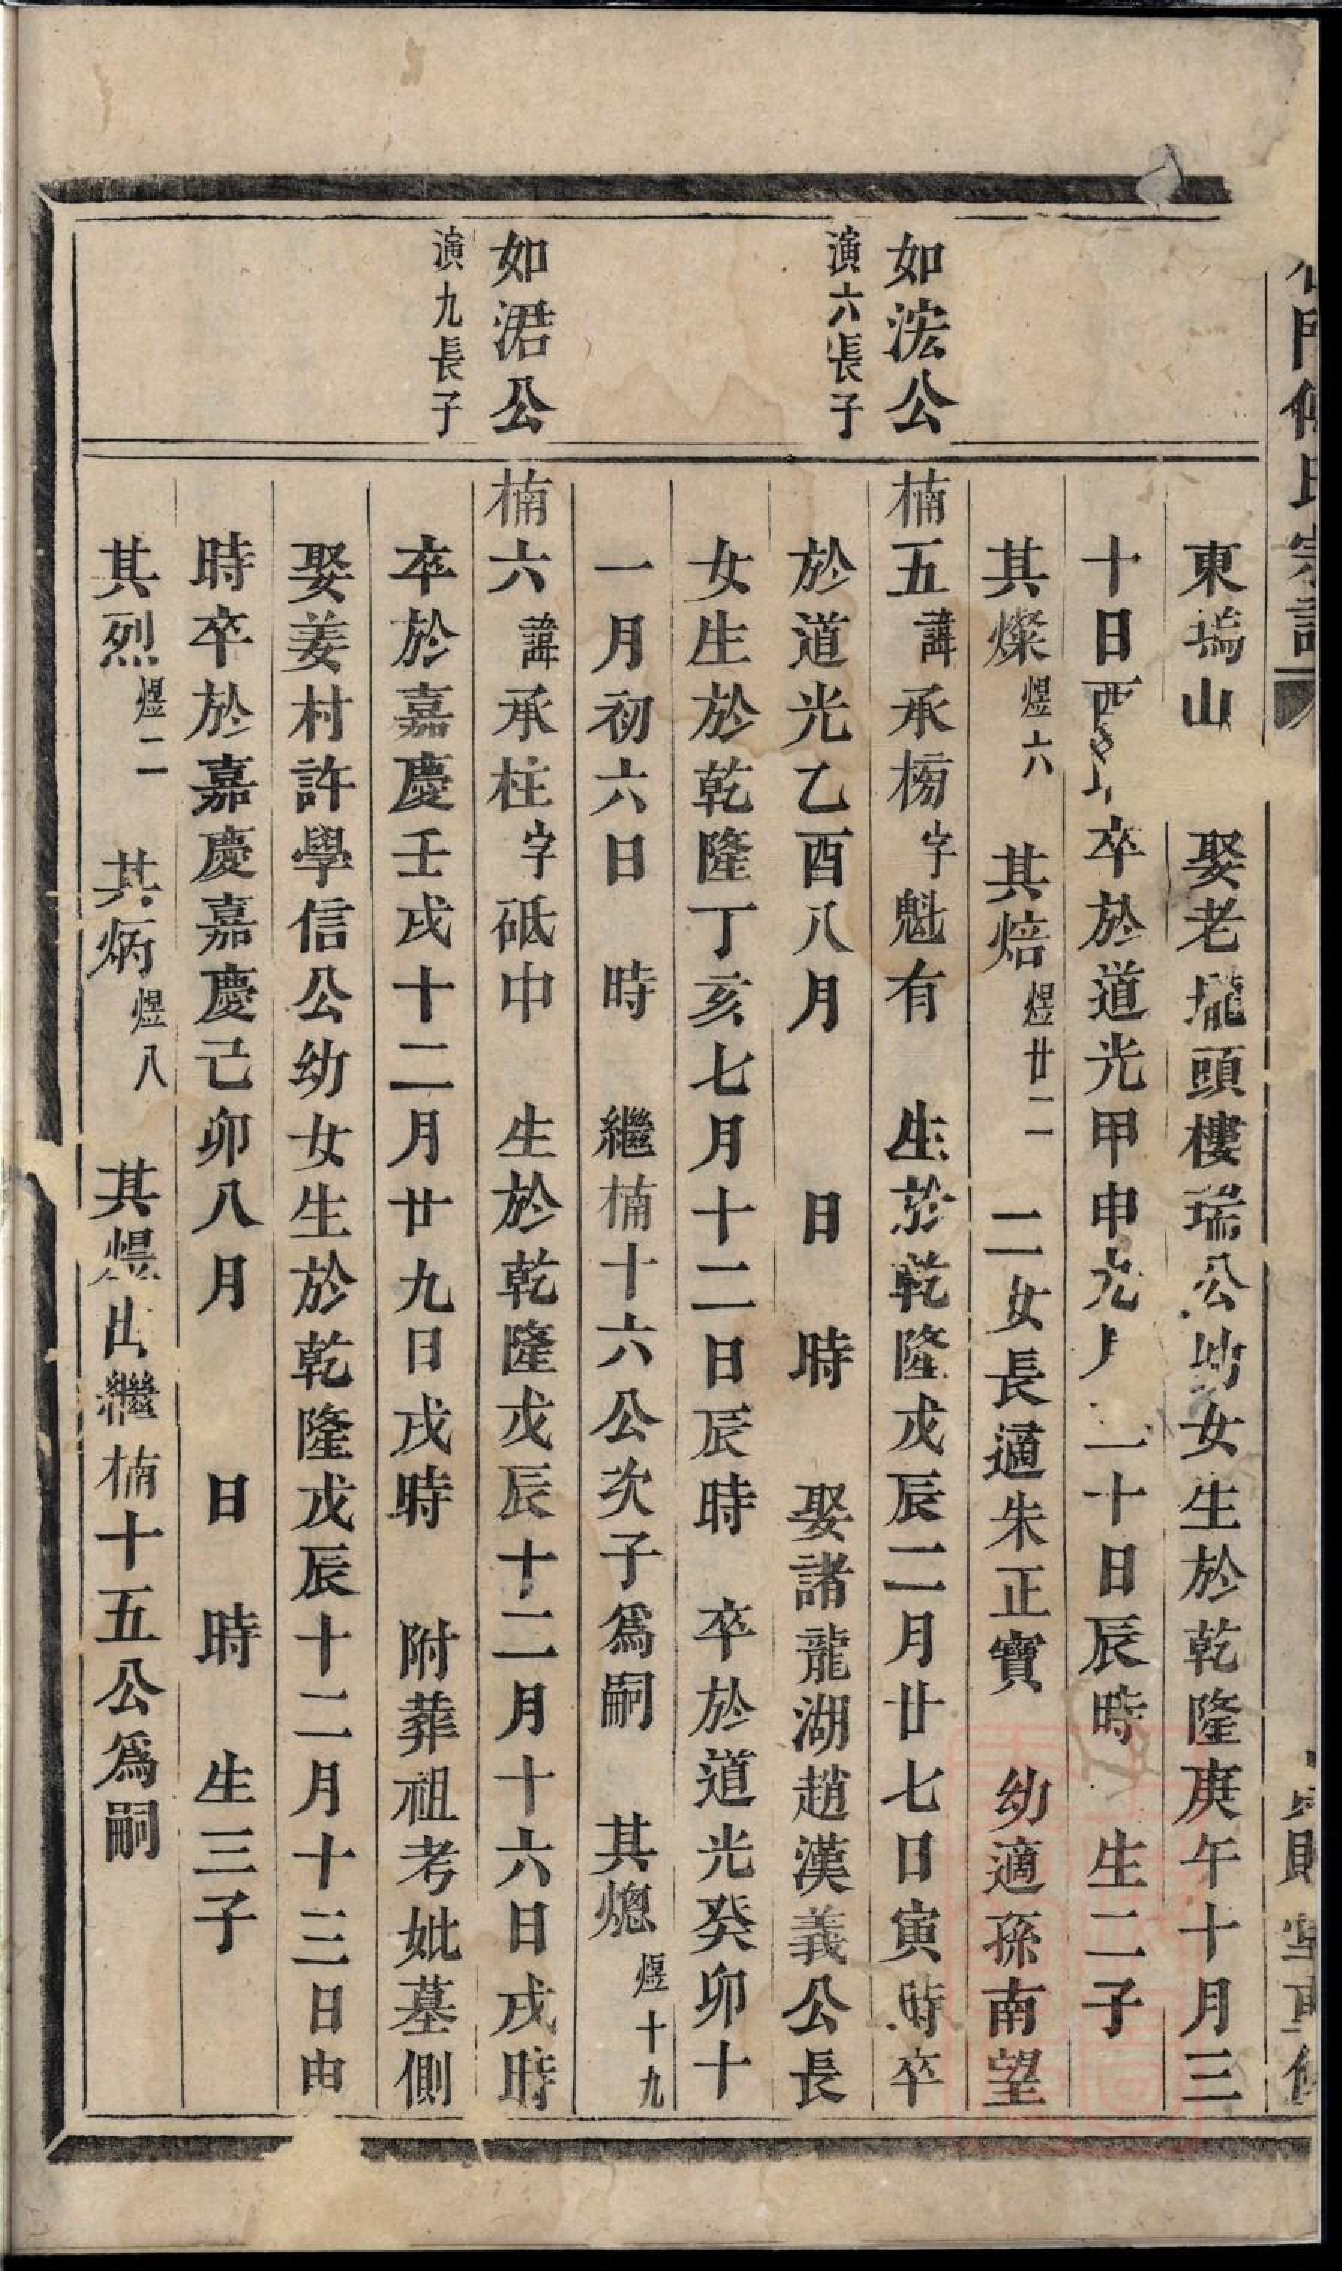 門傅氏宗譜
堂重修
東瑞山 娶老壠頭樓瑞公幼女生於乾隆庚午十月三
十日酉時卒於道光甲申九月二十日辰時 生二子
其燦煜六 其焙煜廿二 二女長適朱正寶 幼適孫南望
如浤公
演六長子
楠五諱承榜字魁有 生於乾隆戊辰二月廿七日寅時卒
於道光乙酉八月 日 時 娶諸龍湖趙漢義公長
女生於乾隆丁亥七月十二日辰時 卒於道光癸卯十
一月初六日 時 繼楠十六公次子爲嗣 其熜煜十九
如涒公
演九長子
楠六諱承柱字砥中 生於乾隆戊辰十二月十六日戌時
卒於嘉慶壬戌十二月廿九日戌時 附葬祖考妣墓側
娶姜村許學信公幼女生於乾隆戊辰十二月十三日由
時卒於嘉慶嘉慶己卯八月 日 時 生三子
其烈煜二 其炳煜八 其煜出繼楠十五公爲嗣